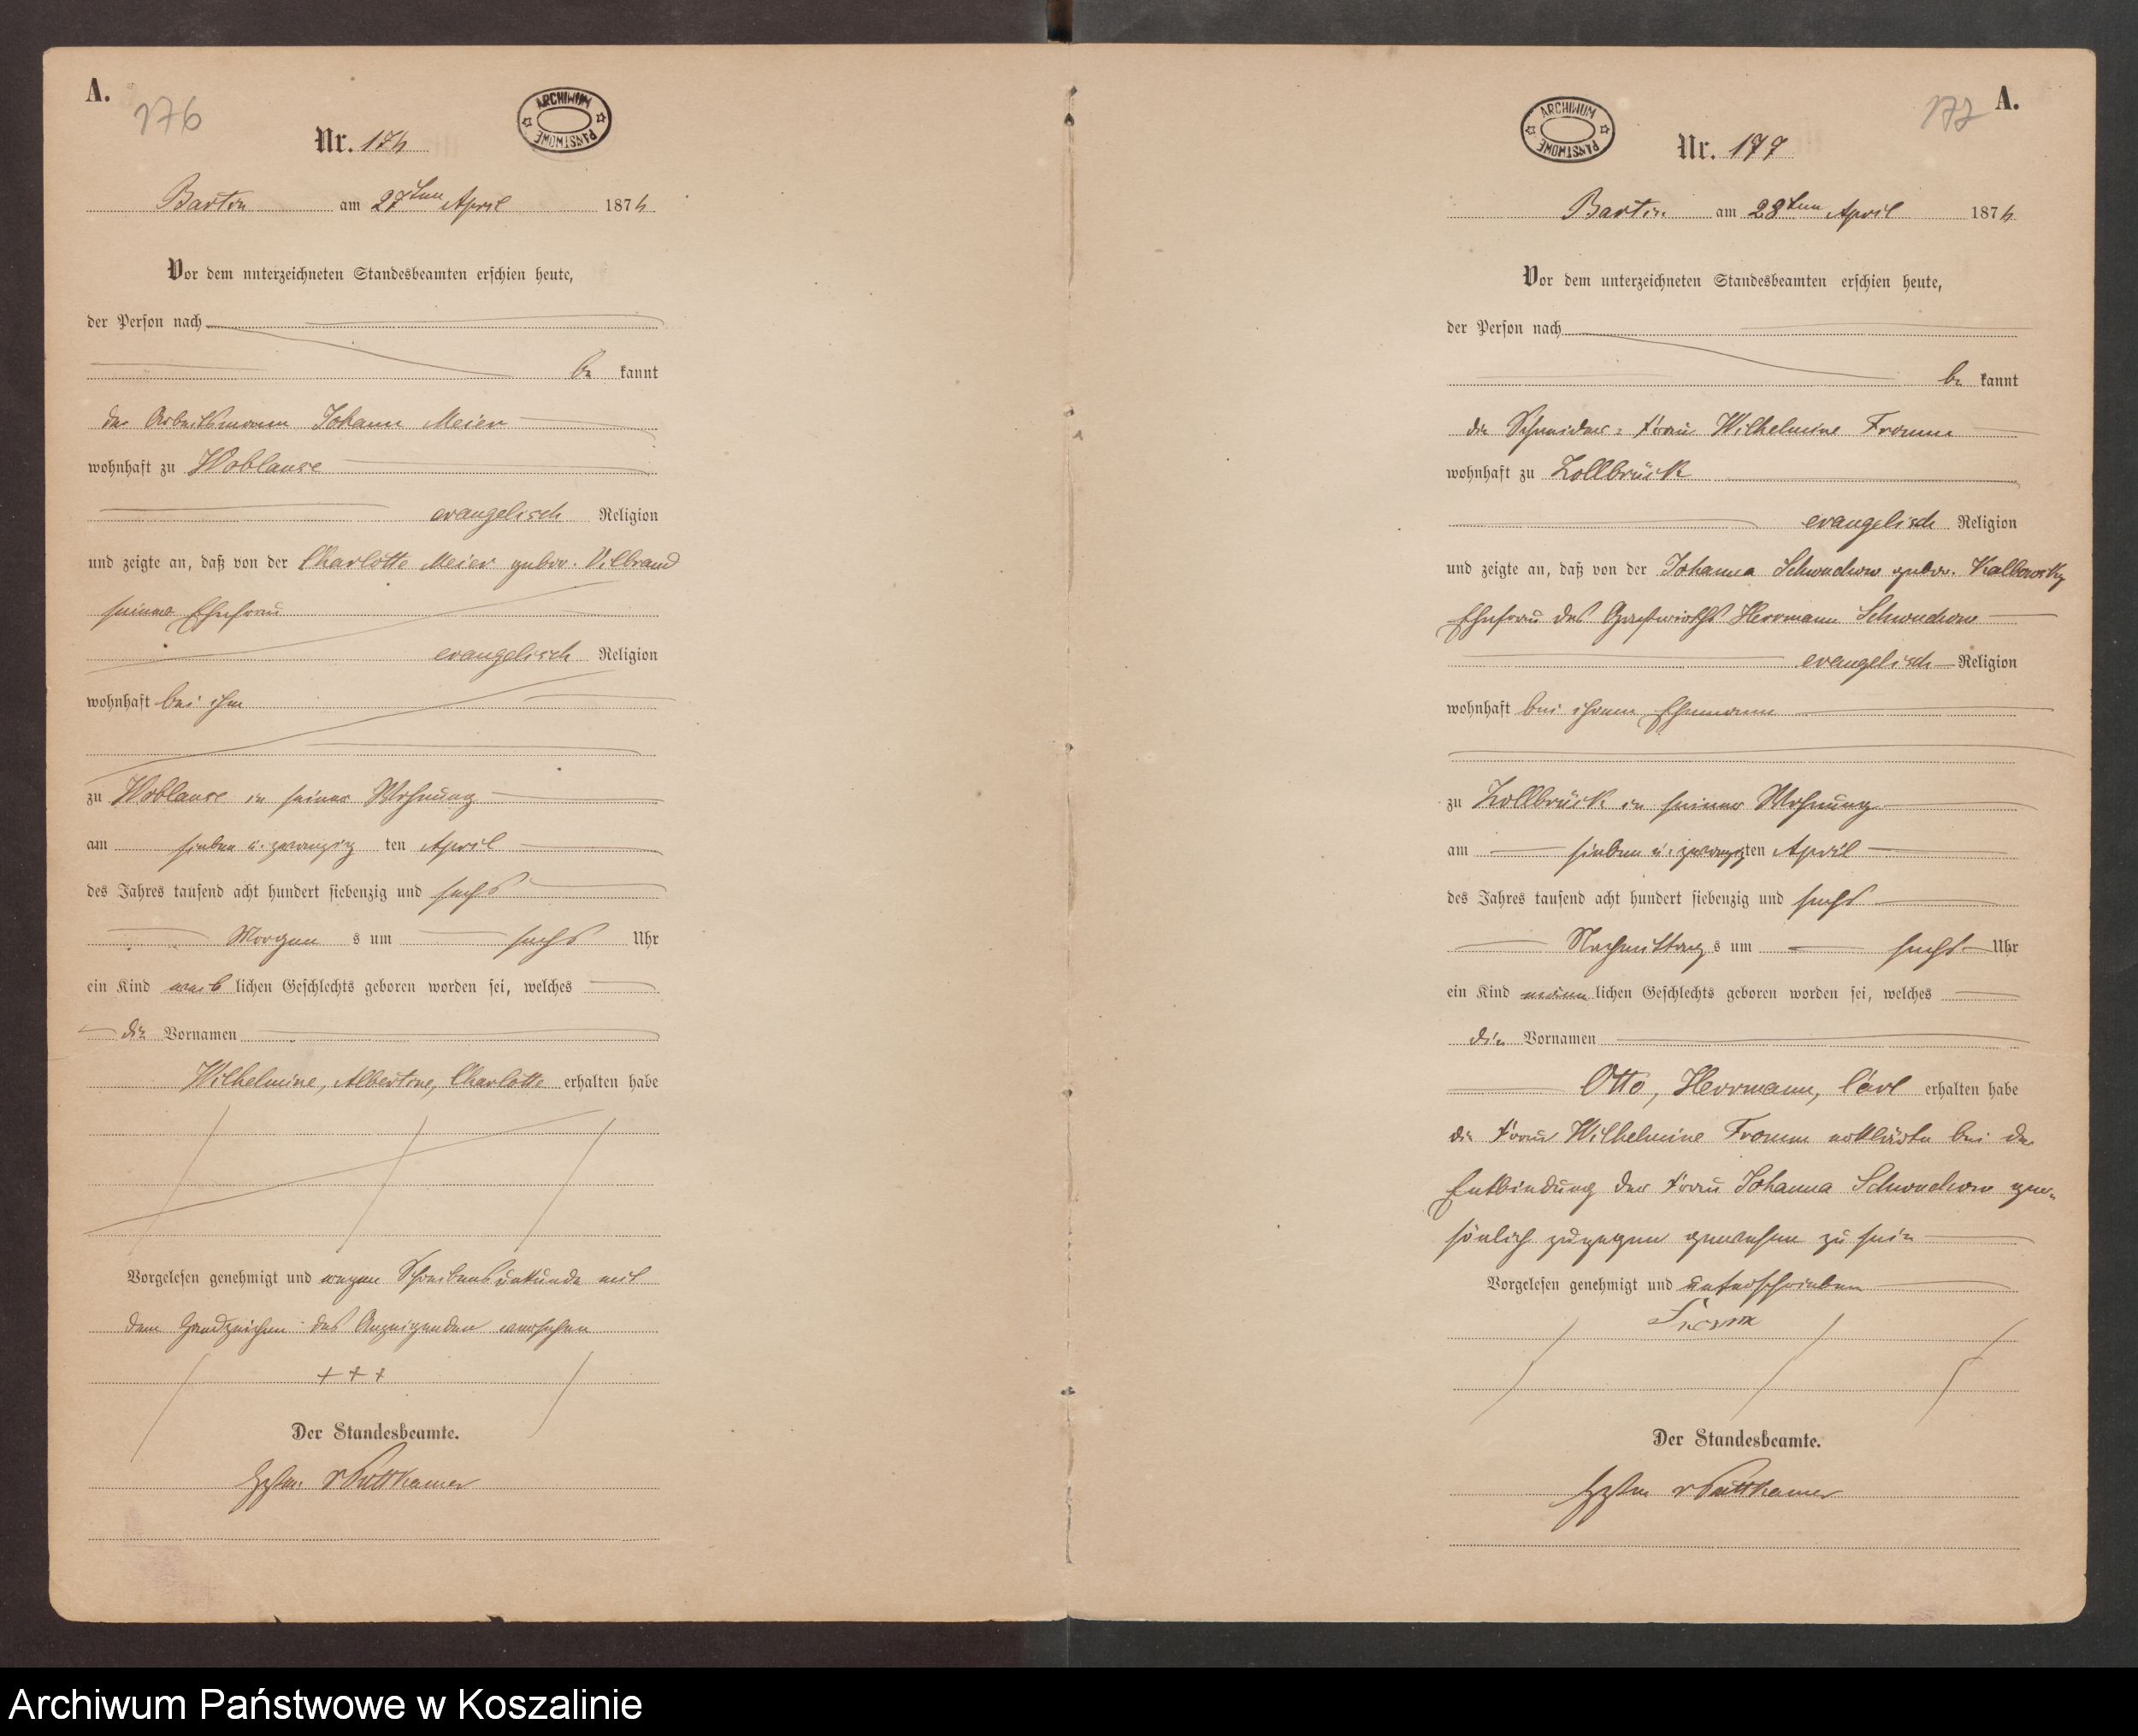 A.
176
ARCHIWUM PAŃSTWOWE
Nr. 176
Bartin am 27ten April 1876
Vor dem unterzeichneten Standesbeamten erschien heute,
der Person nach
be kannt
der Arbeitsmann Johann Meier
wohnhaft zu Woblanse
evangelisch Religion
und zeigte an, daß von der Charlotte Meier gebor. Vilbrand
seiner Ehefrau
evangelisch Religion
wohnhaft bei ihm
zu Woblanse in seiner Wohnung
am sieben u. zwanzig ten April
des Jahres tausend acht hundert siebenzig und sechs
Morgen s um sechs Uhr
ein Kind weib lichen Geschlechts geboren worden sei, welches
die Vornamen
Wilhelmine, Albertine, Charlotte erhalten habe
Vorgelesen genehmigt und wegen Schreibensunkunde mit
dem Handzeichen des Anzeigenden versehen
+++
Der Standesbeamte.
v Puttkamer
A.
177
ARCHIWUM PAŃSTWOWE
Nr. 177
Bartin am 28ten April 1876
Vor dem unterzeichneten Standesbeamten erschien heute,
der Person nach
be kannt
die Schneider= Frau Wilhelmine Fromm
wohnhaft zu Zollbrück
evangelisch Religion
und zeigte an, daß von der Johanna Schwuchow gebor. Kalbowsky
Ehefrau des Gastwirths Herrmann Schwuchow
evangelisch Religion
wohnhaft bei ihrem Ehemann
zu Zollbrück in seiner Wohnung
am sieben u. zwanzigten April
des Jahres tausend acht hundert siebenzig und sechs
Nachmittag s um sechs Uhr
ein Kind männ lichen Geschlechts geboren worden sei, welches
die Vornamen
Otto, Herrmann, Carl erhalten habe
die Frau Wilhelmine Fromm erklärte bei der
Entbindung der Frau Johanna Schwuchow per-
sönlich zugegen gewesen zu sein
Vorgelesen genehmigt und unterschrieben
Fromm
Der Standesbeamte.
v Puttkamer
Archiwum Państwowe w Koszalinie